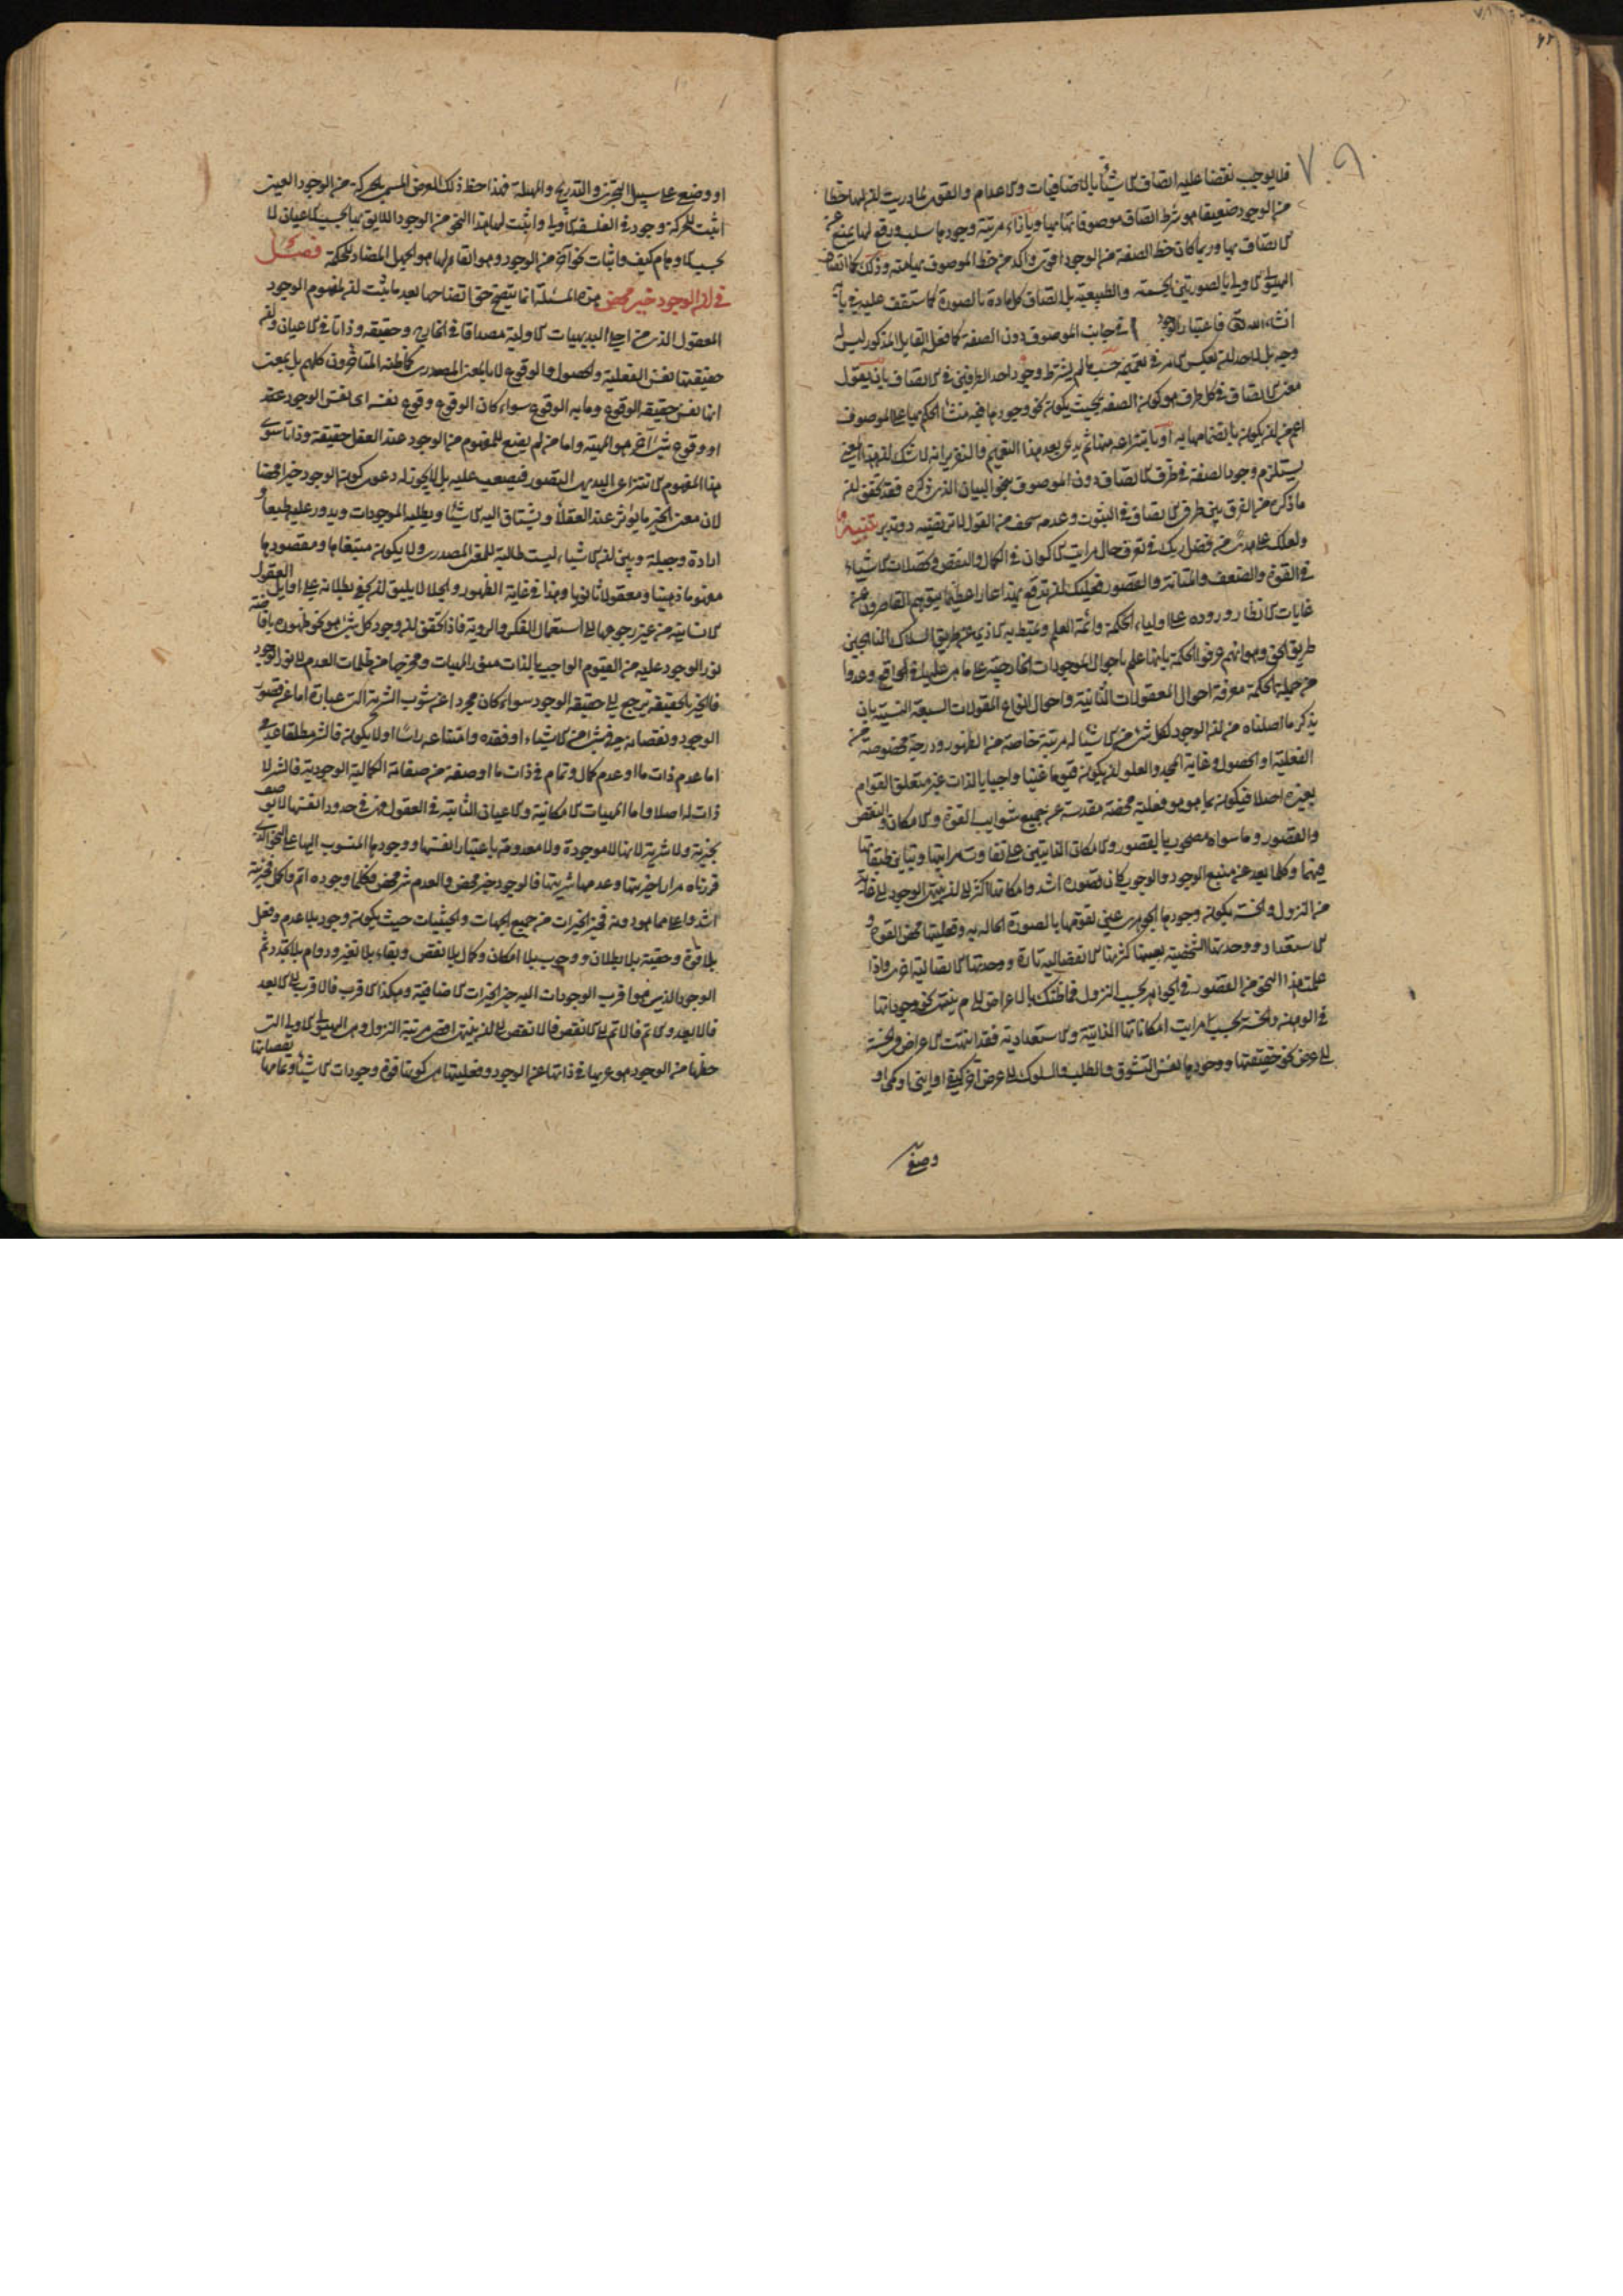 فلا يوجب نقضا عليه اتصاف الاشياء بالاضافيات والاعدام والقوى لما دريت ان لها حظا
من الوجود ضعيفا هو شرط اتصاف موصوفاتها بها وبازاء مرتبة وجودها سلب ورفع لها يمنع عن
الاتصاف بها وربما كان حظ الصفة من الوجود اقوى واكد من حظ الموصوف بها منه وذلك كما في اتصاف
الهيولى الاولى بالصورتين الجسمية والطبيعية بل اتصاف كل مادة بالصورة كما ستقف عليه في بابه
انشاء الله فاعتبار الوجود في جانب الموصوف دون الصفة كما فعله القايل المذكور ليس له
وجه بل لاحد ان يعكس الامر في تعميمه حسب ما لم يشترط وجود احد الطرفين في الاتصاف بان يقول
معنى الاتصاف في كل ظرف هو كون الصفة بحيث يكون نحو وجودها فيه منشأ الحكم بها على الموصوف
اعم من ان يكون بانضمامها به او بانتزاعه منها ثم يدعي بعد هذا التعميم والتقرير انه لا شك ان هذا المعنى
يستلزم وجود الصفة في ظرف الاتصاف دون الموصوف بنحو البيان الذي ذكره فقد تحقق ان
ما ذكره من الفرق بين طرفي الاتصاف في الثبوت وعدمه سخف من القول لا نرتضيه ذو تدبر تنبيه
ولعلك على هدى من فضل ربك في تعرف حال مراتب الاكوان في الكمال والنقص وتحصلات الاشياء
في القوة والضعف والمتانة والقصور فعليك ان تدفع بهذا عارا عظيما يتوهم القاصرون عن
غايات الانظار وروده على اولياء الحكمة وائمة العلم وتميط به الاذى عن طريق السلاك الناهجين
طريق الحق وهو انهم عرفوا الحكمة بانها علم باحوال الموجودات الخارجية على ما هي عليه في الواقع وعدوا
من جملة الحكمة معرفة احوال المعقولات الثانية واحوال انواع المقولات السبعة النسبية بان
يذكر ما اصلناه من ان الوجود لكل شئ من الاشياء له مرتبة خاصة من الظهور ودرجة مخصوصة من
الفعلية والحصول وغاية المجد والعلو ان يكون قيوما غنيا واجبا بالذات غير متعلق القوام
بغيره اصلا فيكون بما هو هو فعلية محضة مقدسة عن جميع شوائب القوة والامكان والنقص
والقصور وما سواه مصحوب بالقصور والامكان الذاتيين على تفاوت مراتبها وتباين طبقاتها
فيهما وكلما بعد عن منبع الوجود والوجوب كان قصوره اشد وامكانه اكثر الى ان ينتهي الوجود الى غاية
من النزول والخسة يكون وجودها الجوهري عين تقومها بالصورة الحالة به وفعليتها محض القوة و
الاستعداد ووحدتها الشخصية بعينها كثرتها الانفصالية تارة ووحدتها الاتصالية اخرى واذا
علمت هذا النحو من القصور في الجواهر بحسب النزول فما ظنك بالاعراض الى م ينتهي نحو وجوداتها
في الوهن والخسة بحسب مراتب امكاناتها الذاتية والاستعدادية فقد انتهت الاعراض والخسة
الى عرض نحو حقيقتها ووجودها نفس التشوق والطلب والسلوك الى عرض اخر كيفي او ايني او كمي او
وضعي
او وضعي على سبيل التجزي والتدريج والمهلة فهذا حظ ذلك العرض المسمى بالحركة من الوجود العيني
اثبت للحركة وجود في الفلسفة الاولى واثبت لها هذا النحو من الوجود اللايق بها بحسب الاعيان لا
بحسب الاوهام كيف واثبات نحو اخر من الوجود وهو القار لها هو الجهل المضاد للحكمة فصل
في ان الوجود خير محض هذه المسئلة انما يتضح حق اتضاحها بعد ما ثبت ان لمفهوم الوجود
المعقول الذي من اجلى البديهيات الاولية مصداقا في الخارج وحقيقة وذاتا في الاعيان وان
حقيقتها نفس الفعلية والحصول والوقوع لا بالمعنى المصدري كما ظنه المتاخرون كلهم بل بمعنى
انها نفس حقيقة الوقوع وما به الوقوع سواء كان الوقوع وقوع نفسه اي نفس الوجود عنه
او وقوع شئ آخر هو المهية واما من لم يضع للمفهوم من الوجود عند العقل حقيقة وذاتا سوى
هذا المفهوم الانتزاعي البديهي التصور فيصعب عليه بل لا يجوز له دعوى كون الوجود خيرا محضا
لان معنى الخير ما يؤثر عند العقلاء ويشتاق اليه الاشياء ويطلبه الموجودات ويدور عليه طبعا و
ارادة وجبلة وبين ان الاشياء ليست طالبة للمعنى المصدري ولا يكون مبتغاها ومقصودها
مفهوما ذهنيا ومعقولا ثانويا وهذا في غاية الظهور والجلاء لا يليق ان يخفى بطلانه على اوايل العقول
الانسانية من غير رجوعها الى استعمال الفكر والروية فاذا تحقق ان وجود كل شئ هو نحو ظهوره بافاضة
نور الوجود عليه من القيوم الواجب بالذات منور المهيات ومخرجها من ظلمات العدم الى نور الوجود
فالخير بالحقيقة يرجع الى حقيقة الوجود سواء كان مجردا عن شوب الشرية التي هي عبارة اما عن قصور
الوجود ونقصانه في شئ من الاشياء او فقده وامتناعه راسا او لا يكون فالشر مطلقا عدمي
اما عدم ذات ما او عدم كمال وتمام في ذات ما او صفة من صفاته الكمالية الوجودية فالشر لا
ذات له اصلا واما المهيات الامكانية والاعيان الثابتة في العقول فهي في حدود انفسها لا يوصف
بخيرية ولا شرية لانها لا موجودة ولا معدومة باعتبار انفسها ووجودها المنسوب اليها على النحو الذي
قررناه مرارا خيريتها وعدمها شريتها فالوجود خير محض والعدم شر محض فكلما وجوده اتم واكمل فخيريته
اشد واعلى مما هو دونه فخير الخيرات من جميع الجهات والحيثيات حيث يكون وجود بلا عدم وفعل
بلا قوة وحقية بلا بطلان ووجوب بلا امكان وكمال بلا نقص وبقاء بلا تغير ودوام بلا تجدد ثم
الوجود الذي هو اقرب الوجودات اليه خير الخيرات الاضافية وهكذا الاقرب فالاقرب الى الابعد
فالابعد والاتم فالاتم الى الانقص فالانقص الى ان ينتهي الى اقصى مرتبة النزول وهي الهيولى الاولى التي
حظها من الوجود هو عريها في ذاتها عن الوجود وفعليتها هي كونها قوة وجودات الاشياء وتمامها نقصانها